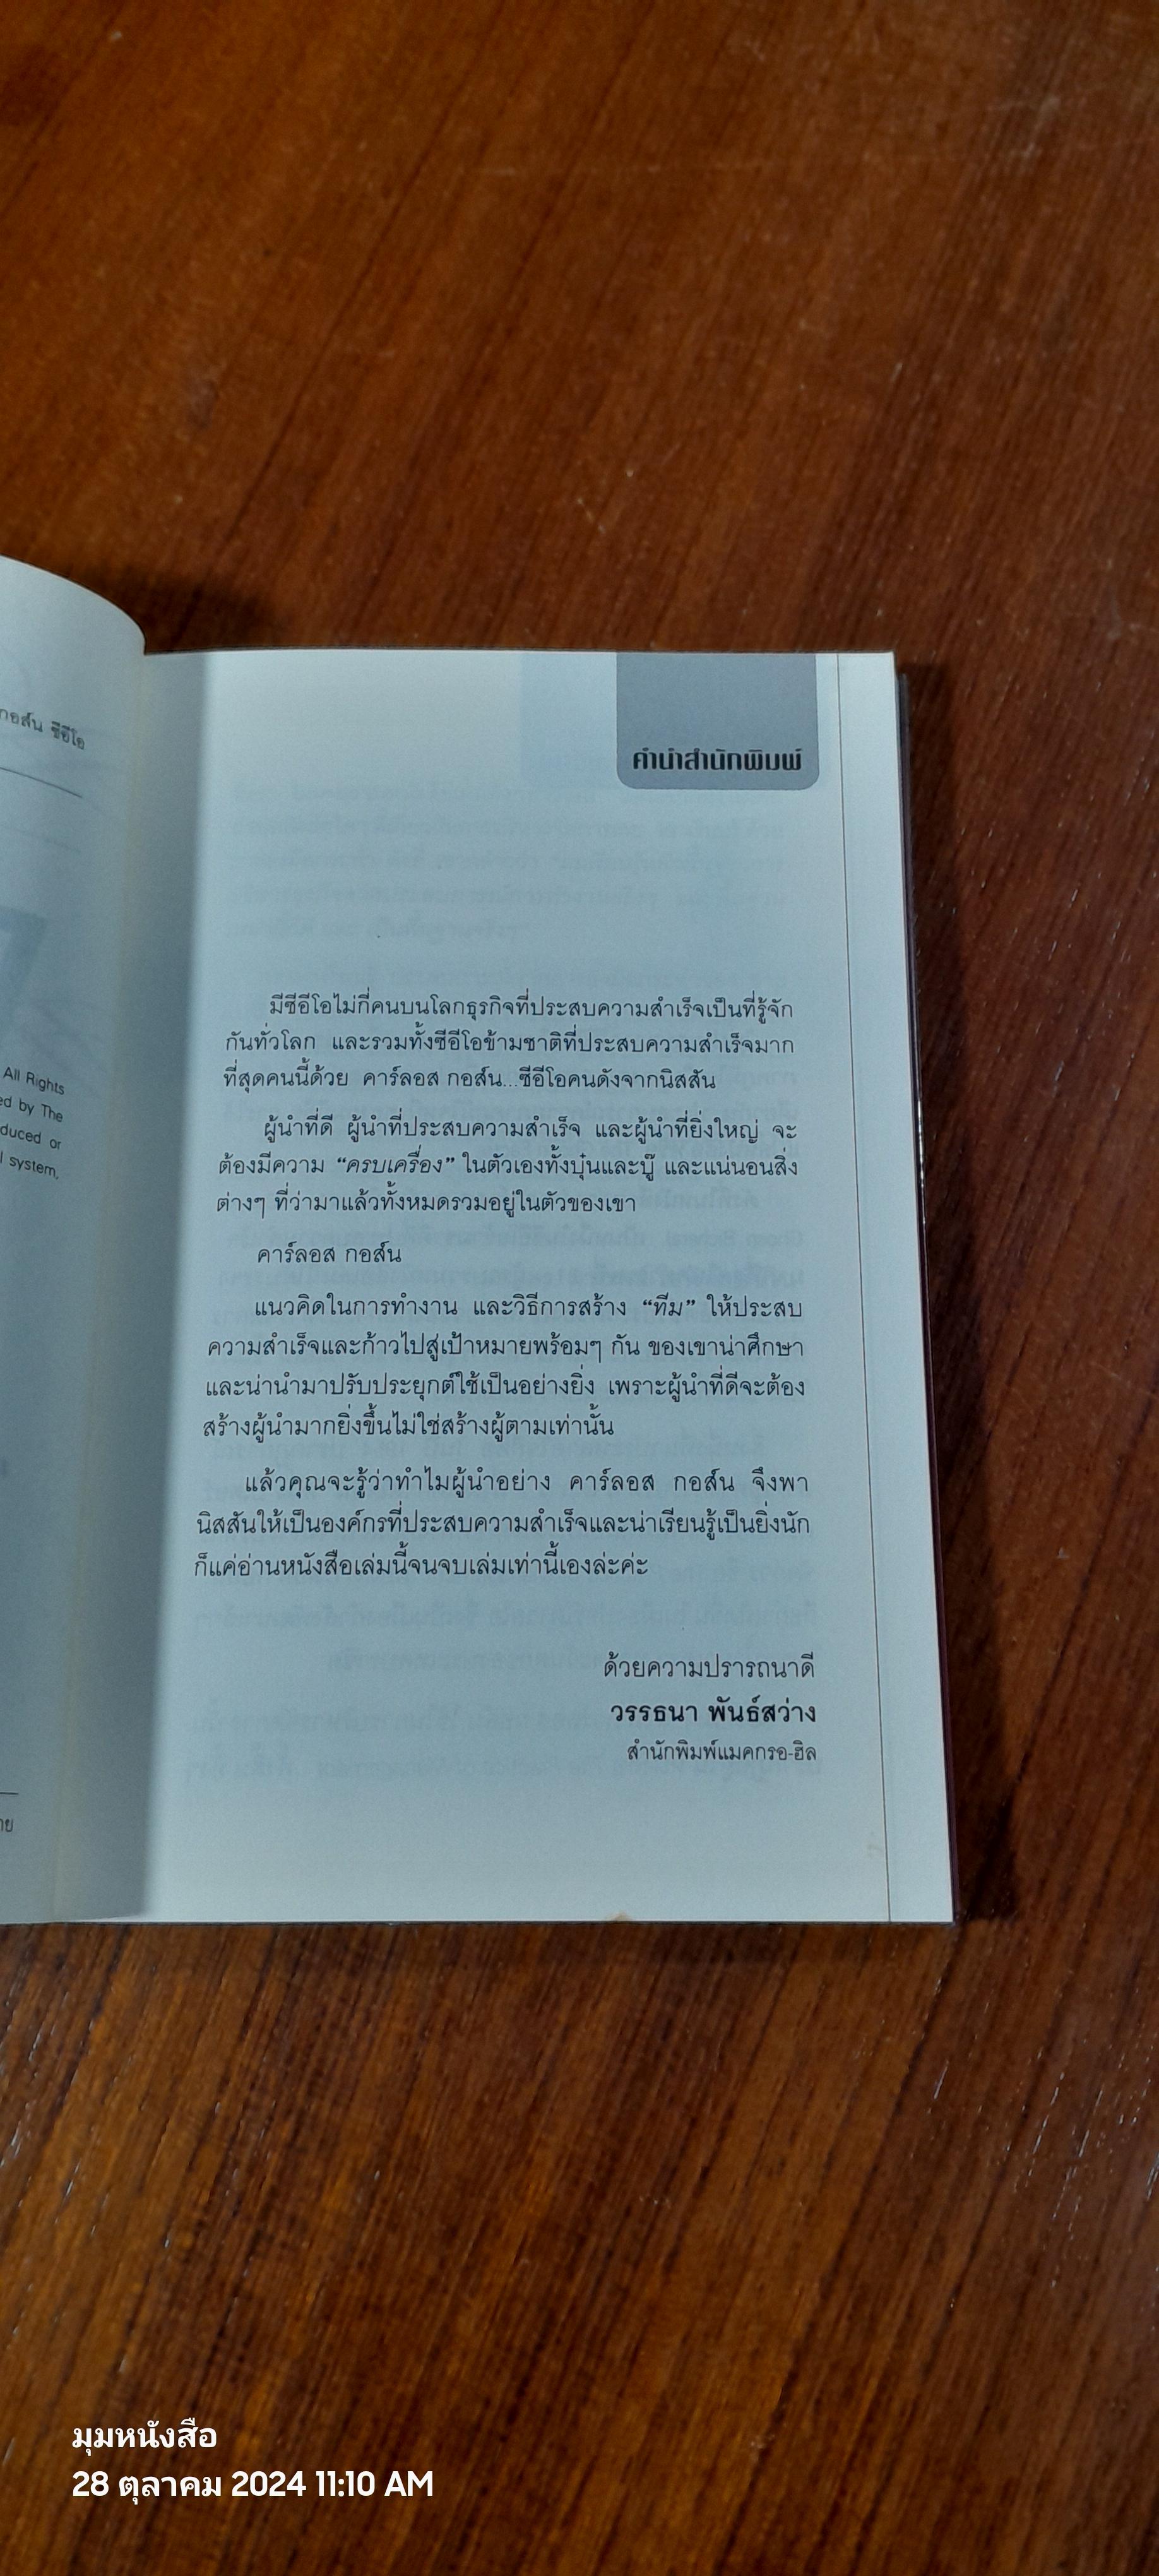 กอส์น ซีอีโอ
All Rights
ed by The
duced or
l system,
คำนำสำนักพิมพ์
มีซีอีโอไม่กี่คนบนโลกธุรกิจที่ประสบความสำเร็จเป็นที่รู้จัก
กันทั่วโลก และรวมทั้งซีอีโอข้ามชาติที่ประสบความสำเร็จมาก
ที่สุดคนนี้ด้วย คาร์ลอส กอส์น...ซีอีโอคนดังจากนิสสัน
ผู้นำที่ดี ผู้นำที่ประสบความสำเร็จ และผู้นำที่ยิ่งใหญ่ จะ
ต้องมีความ “ครบเครื่อง” ในตัวเองทั้งบุ๋นและบู๊ และแน่นอนสิ่ง
ต่างๆ ที่ว่ามาแล้วทั้งหมดรวมอยู่ในตัวของเขา
คาร์ลอส กอส์น
แนวคิดในการทำงาน และวิธีการสร้าง “ทีม” ให้ประสบ
ความสำเร็จและก้าวไปสู่เป้าหมายพร้อมๆ กัน ของเขาน่าศึกษา
และน่านำมาปรับประยุกต์ใช้เป็นอย่างยิ่ง เพราะผู้นำที่ดีจะต้อง
สร้างผู้นำมากยิ่งขึ้นไม่ใช่สร้างผู้ตามเท่านั้น
แล้วคุณจะรู้ว่าทำไมผู้นำอย่าง คาร์ลอส กอส์น จึงพา
นิสสันให้เป็นองค์กรที่ประสบความสำเร็จและน่าเรียนรู้เป็นยิ่งนัก
ก็แค่อ่านหนังสือเล่มนี้จนจบเล่มเท่านี้เองล่ะค่ะ
ด้วยความปรารถนาดี
วรรธนา พันธ์สว่าง
สำนักพิมพ์แมคกรอ-ฮิล
มุมหนังสือ
28 ตุลาคม 2024 11:10 AM